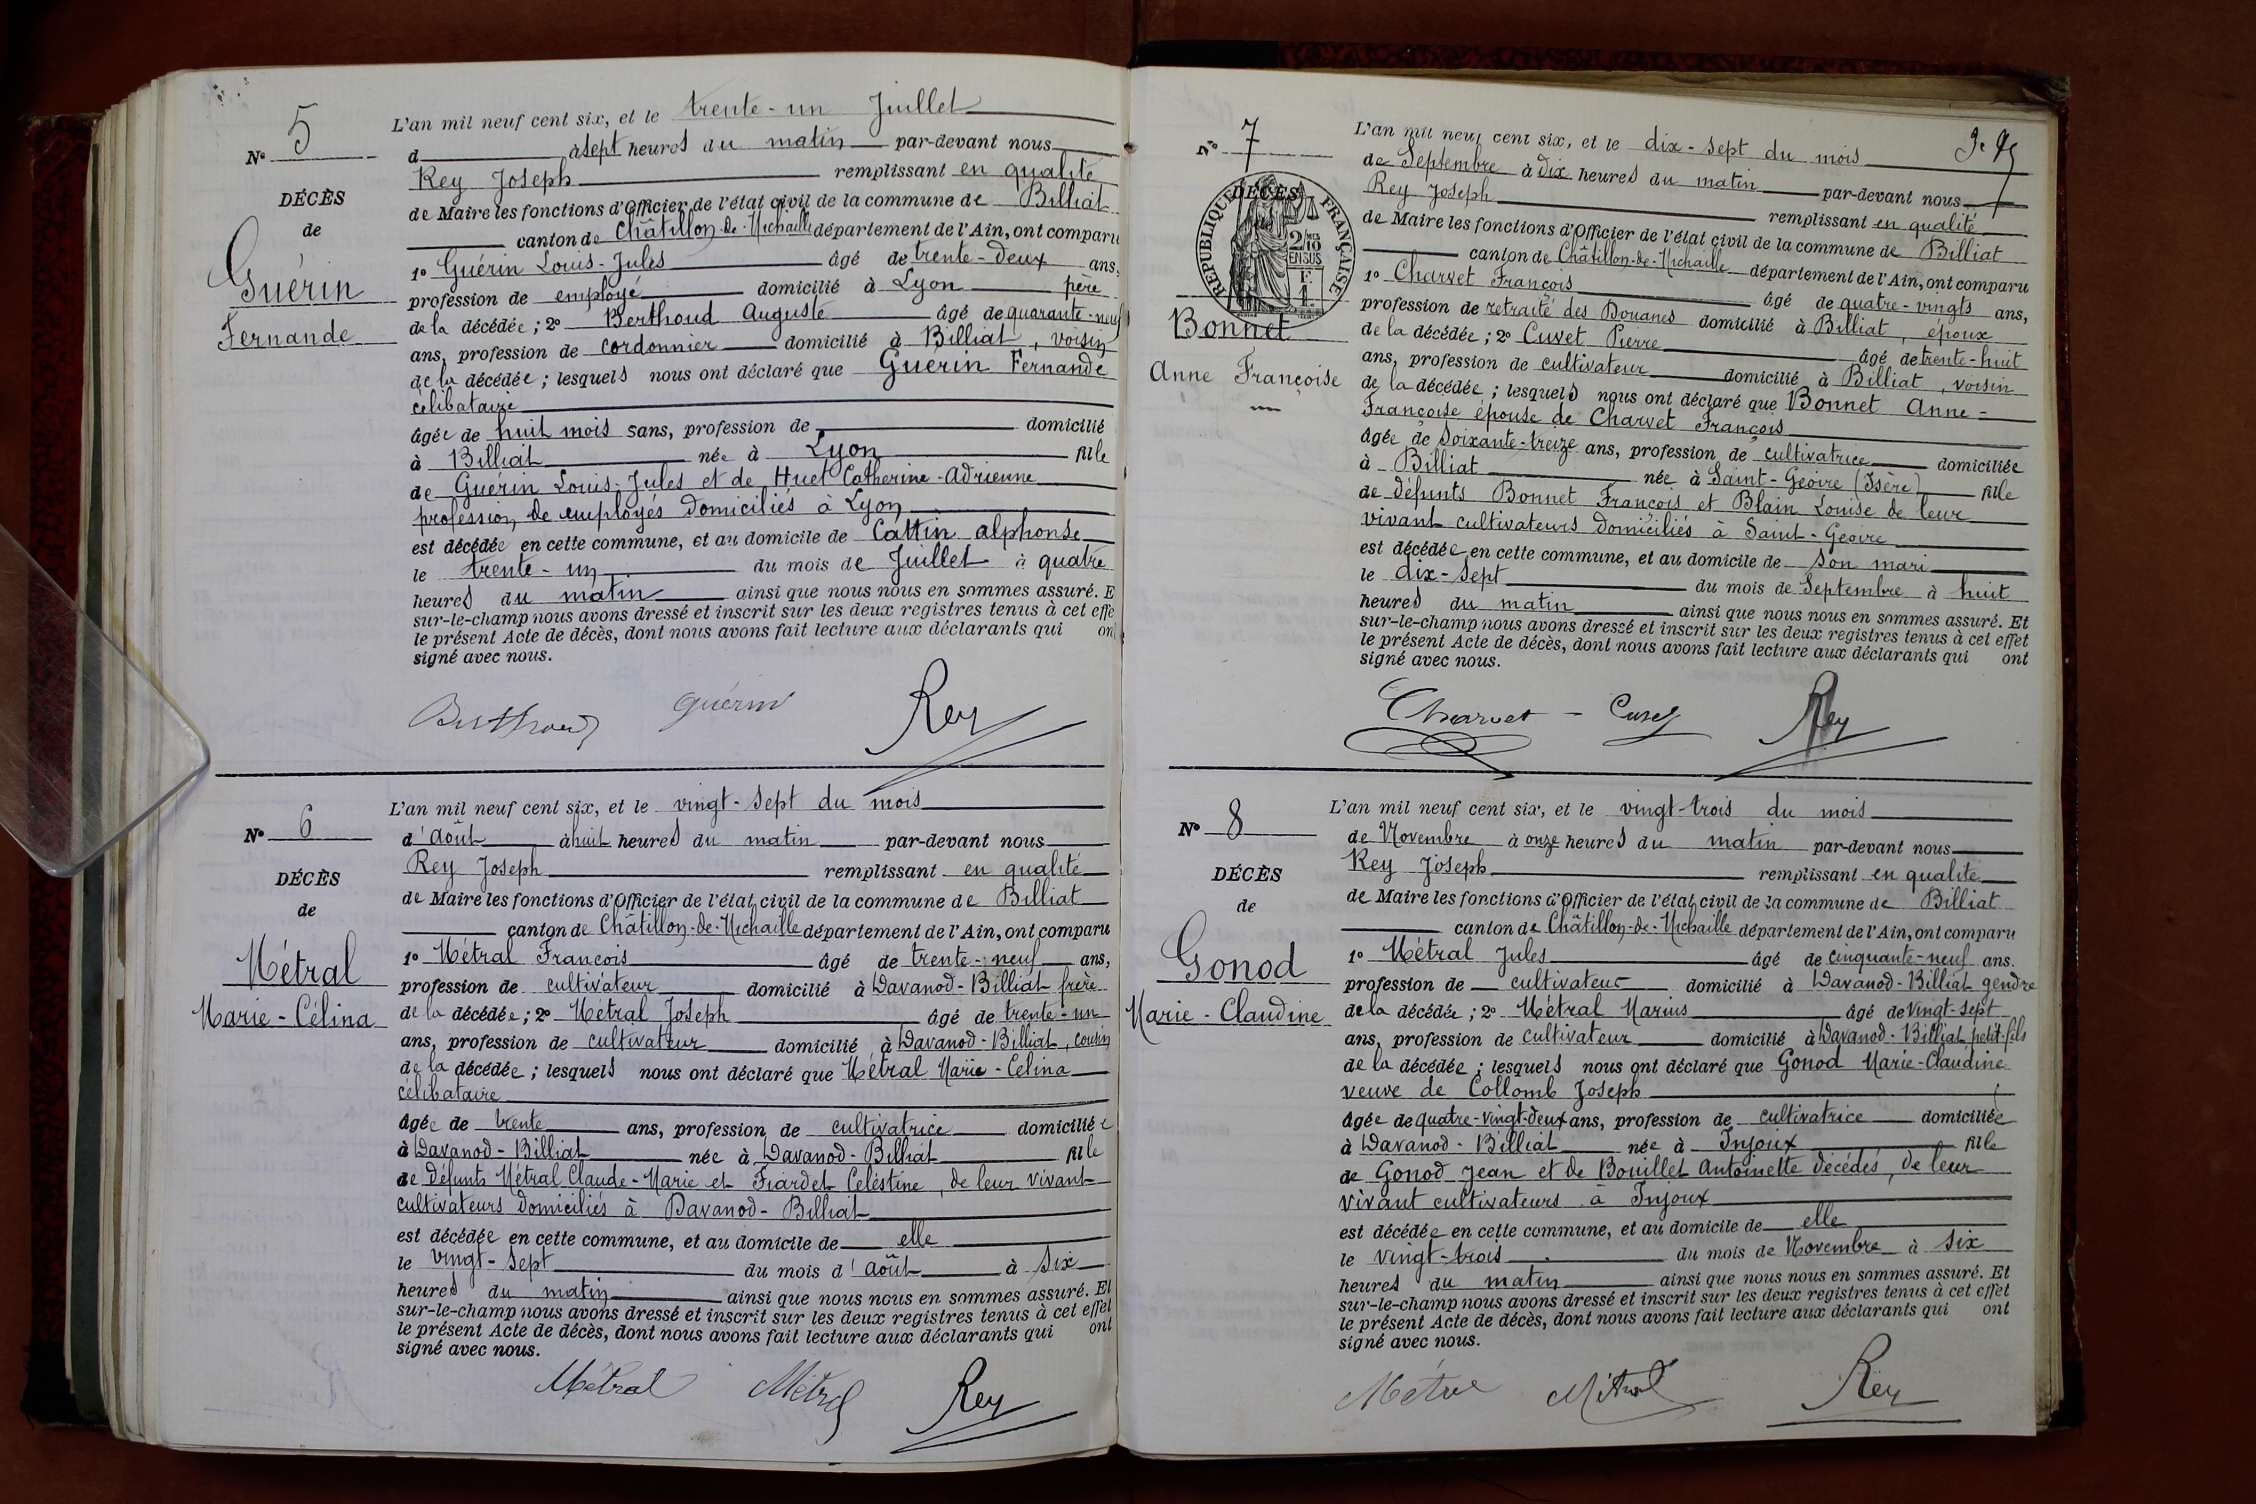 N° 5
DÉCÈS
de
Guérin
Fernande
L'an mil neuf cent six, et le trente-un Juillet
d à sept heures du matin par-devant nous
Rey Joseph remplissant en qualité
de Maire les fonctions d'Officier de l'état civil de la commune de Billiat
canton de Châtillon-de-Michaille département de l'Ain, ont comparu
1° Guérin Louis-Jules âgé de trente-deux ans,
profession de employé domicilié à Lyon père
de la décédée ; 2° Berthoud Auguste âgé de quarante-neuf
ans, profession de cordonnier domicilié à Billiat, voisin
de la décédée ; lesquels nous ont déclaré que Guérin Fernande
célibataire
âgée de huit mois sans, profession de domicilié
à Billiat née à Lyon fille
de Guérin Louis-Jules et de Huet Catherine-Adrienne
profession de employés domiciliés à Lyon
est décédée en cette commune, et au domicile de Cattin alphonse
le trente-un du mois de Juillet à quatre
heures du matin ainsi que nous nous en sommes assuré. E
sur-le-champ nous avons dressé et inscrit sur les deux registres tenus à cet effe
le présent Acte de décès, dont nous avons fait lecture aux déclarants qui on
signé avec nous.
Berthoud Guérin Rey
N° 6
DÉCÈS
de
Métral
Marie-Célina
L'an mil neuf cent six, et le vingt-sept du mois
d'août à huit heures du matin par-devant nous
Rey Joseph remplissant en qualité
de Maire les fonctions d'Officier de l'état civil de la commune de Billiat
canton de Châtillon-de-Michaille département de l'Ain, ont comparu
1° Métral François âgé de trente-neuf ans,
profession de cultivateur domicilié à Davanod-Billiat frère
de la décédée ; 2° Métral Joseph âgé de trente-un
ans, profession de cultivateur domicilié à Davanod-Billiat, cousin
de la décédée ; lesquels nous ont déclaré que Métral Marie-Célina
célibataire
âgée de trente ans, profession de cultivatrice domiciliée
à Davanod-Billiat née à Davanod-Billiat fille
de défunts Métral Claude-Marie et Fiardet Celéstine, de leur vivant
cultivateurs domiciliés à Davanod-Billiat
est décédée en cette commune, et au domicile de elle
le vingt-sept du mois d'août à six
heures du matin ainsi que nous nous en sommes assuré. Et
sur-le-champ nous avons dressé et inscrit sur les deux registres tenus à cet effet
le présent Acte de décès, dont nous avons fait lecture aux déclarants qui ont
signé avec nous.
Métral Métral Rey
N° 7
DÉCÈS
RÉPUBLIQUE FRANÇAISE
2/10 MES
EN SUS
F.
1.
Bonnet
Anne Françoise
L'an mil neuf cent six, et le dix-sept du mois
de Septembre à dix heures du matin par-devant nous
Rey Joseph remplissant en qualité
de Maire les fonctions d'Officier de l'état civil de la commune de Billiat
canton de Châtillon-de-Michaille département de l'Ain, ont comparu
1° Charvet François âgé de quatre-vingts ans,
profession de retraité des Douanes domicilié à Billiat, époux
de la décédée ; 2° Cuvet Pierre âgé de trente-huit
ans, profession de cultivateur domicilié à Billiat, voisin
de la décédée ; lesquels nous ont déclaré que Bonnet Anne-
Françoise épouse de Charvet François
âgée de soixante-treize ans, profession de cultivatrice domiciliée
à Billiat née à Saint-Geoire (Isère) fille
de défunts Bonnet François et Blain Louise de leur
vivant cultivateurs domiciliés à Saint-Geoire
est décédée en cette commune, et au domicile de son mari
le dix-sept du mois de Septembre à huit
heures du matin ainsi que nous nous en sommes assuré. Et
sur-le-champ nous avons dressé et inscrit sur les deux registres tenus à cet effet
le présent Acte de décès, dont nous avons fait lecture aux déclarants qui ont
signé avec nous.
Charvet Cuvet Rey
N° 8
DÉCÈS
de
Gonod
Marie-Claudine
L'an mil neuf cent six, et le vingt-trois du mois
de Novembre à onze heures du matin par-devant nous
Rey Joseph remplissant en qualité
de Maire les fonctions d'Officier de l'état civil de la commune de Billiat
canton de Châtillon-de-Michaille département de l'Ain, ont comparu
1° Métral Jules âgé de cinquante-neuf ans.
profession de cultivateur domicilié à Davanod-Billiat gendre
de la décédée ; 2° Métral Marius âgé de vingt-sept
ans, profession de cultivateur domicilié à Davanod-Billiat petit-fils
de la décédée ; lesquels nous ont déclaré que Gonod Marie-Claudine
veuve de Collomb Joseph
âgée de quatre-vingt-deux ans, profession de cultivatrice domiciliée
à Davanod-Billiat née à Injoux fille
de Gonod Jean et de Bouillet Antoinette décédés, de leur
vivant cultivateurs à Injoux
est décédée en cette commune, et au domicile de elle
le vingt-trois du mois de Novembre à six
heures du matin ainsi que nous nous en sommes assuré. Et
sur-le-champ nous avons dressé et inscrit sur les deux registres tenus à cet effet
le présent Acte de décès, dont nous avons fait lecture aux déclarants qui ont
signé avec nous.
Métral Métral Rey